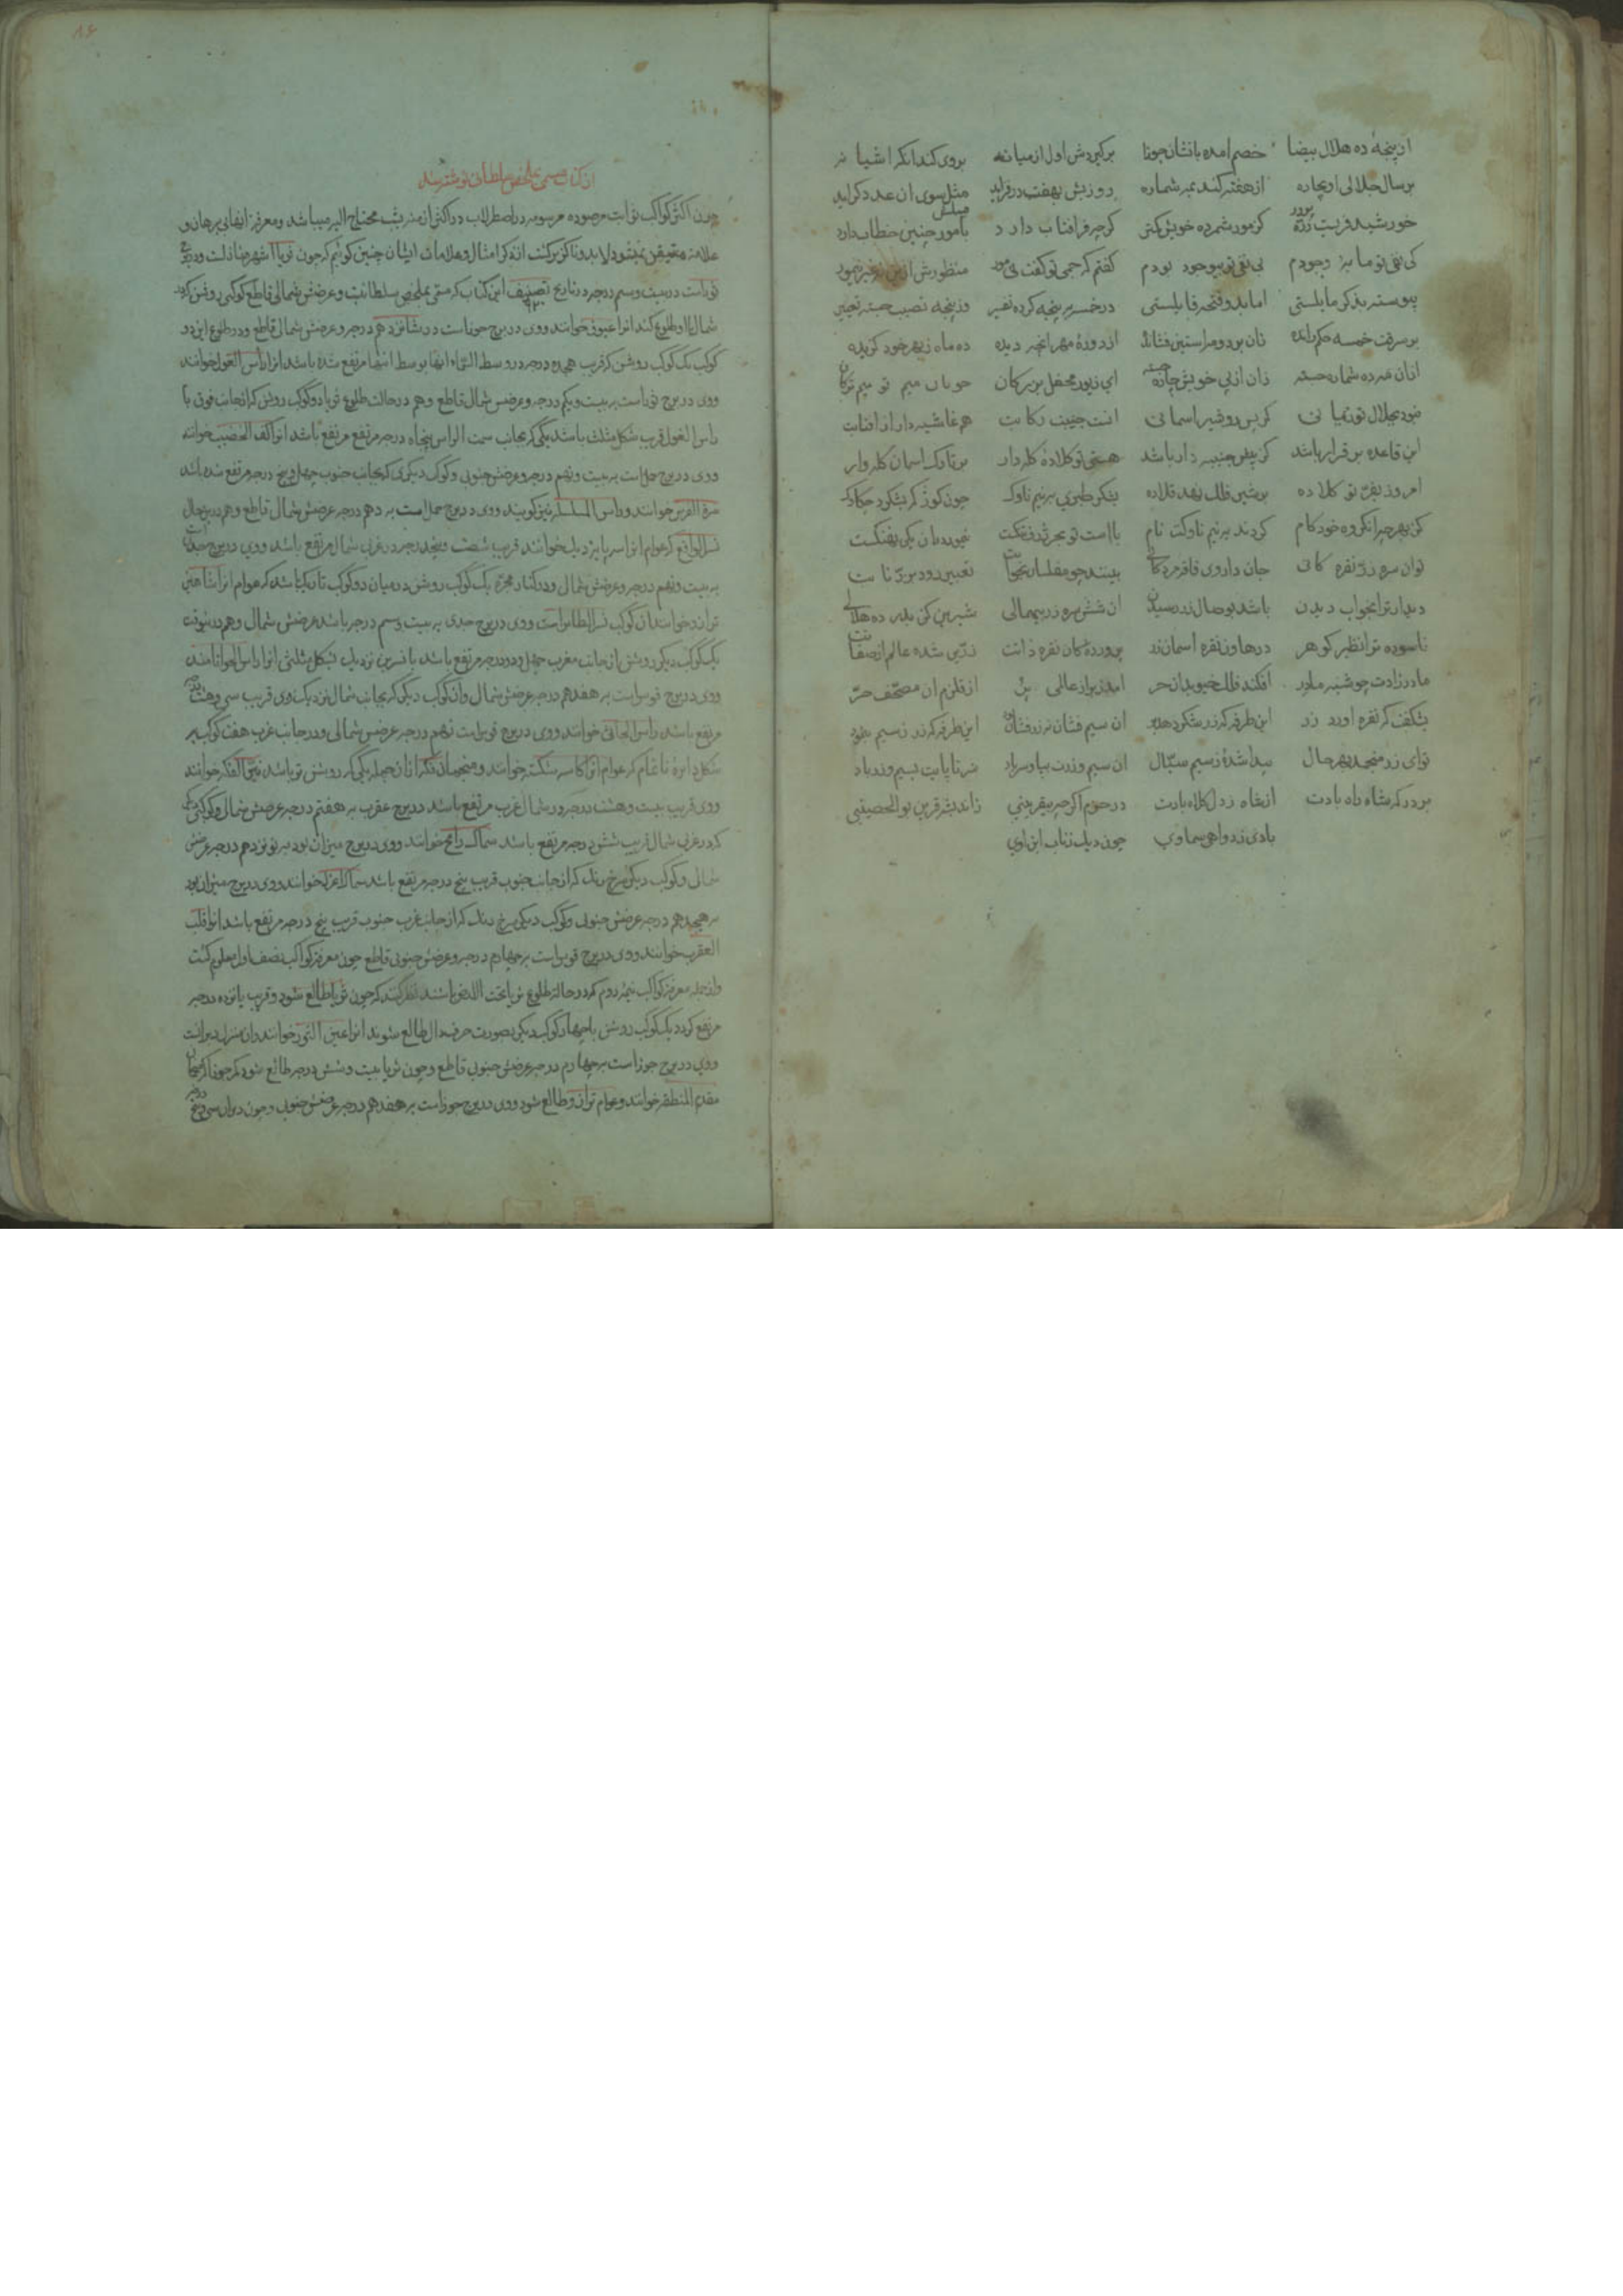 از پنجهٔ ده هلال بیضا خصم امده بانشان جوزا برکیردش اول از میانه بروی کند انکر اشیانه
برسال جلالی او بچاره از هفته کند بمه شماره روزیش بهفت درفزاید مثل سوی ان عدد کراید
خورشید فریب زرّه پرور کزمور شمرده خویش کمتر کرچه فر افتاب دارد بامور چنین خطاب دارد
کی نفی تو مایهٔ وجودم بی نفی تو بیوجود بودم کفتم که جمی تو کفت نی مور منظورش ازین
پیوسته بذکر ما یلستی اما بدو فتحه قایلستی در خمسه پنجه کرده تفسیر وز پنجه نصیب جسته تعبیر
بر سرقت خمسه حکم رانده زان بر دو مر استین فشانده از دورهٔ مهر انچه دیده ده ماه زبهر خود کزیده
زان از پی خویش چاره جسته ای زیور محفل بزرکان خوبان میم تو میم ترکان
کر پس رو شیر اسمانی انت جنیبت رکابت هم غاشیه دار از افتابت
این قاعده برقرار باشد کز پیش جنیبه دار باشد هستی تو کلاده کله دار بر تارک اسمان کله وار
امروز بفرّ تو کلاده بر شیر فلک نهد قلاده بنکر طبری به نیم ناوک چون کوز کر بشکرد چکاوک
کز بهر چرا نکروه خود کام کردند به نیم ناوکت نام باامت تو بحر ژرف
توان سره زرّ نقره کانی جان داروی فاقه بینند چو مفلسان بخوابت تعبیر رود بزرّ نابت
دیدار ترا بخواب دیدن باشد بوصال زر رسیدن ان شش سره زر بیهمالی شیرین کن بدره ده هلالی
ناسوده ترا نظیر کوهر در هاون نقره اسمان زر پروردهٔ کان نقره ذاتت زرّین شده عالم از صفاتت
مادر زادت چو شبه مادر افکند فلک امد زبر از عالی پُر از قلزم ان مصحّف حرّ
بشکفت کر نقره اورد زر این طرفه که زر ان سیم فشان نه زر فشان این طرفه که زر ز سیم بفزود
توای زر منجمد بهر حال پیدا شدهٔ ز سیم سیّال ان سیم و زرت بپا و سر باد سرتا پایت بسیم و زر باد
بر درکه شاه راه بادت از شاه زر کلاه بادت در حزم اکرچه بیقرینی زاندیشه قرین بو الحصینی
بادی زدواهی سماوی چون دیک زتاب ابن اوی
از کتاب مسمی بملخص سلطانی نوشته شد
چون اکثر کواکب ثوابت مرصوده مرسومه در اصطرلاب در اکثر ازمنه شب محتاج الیه میباشد و معرفت انها بی برهان و
علامت متیقن نمیشود لابد و ناکزیر کشت انکه کر امثال و علامات ایشان چنین کوئیم که چون ثریا اشهر منازلست و در برج
ثورست در بیست وسیم درجه در تاریخ تصنیف این کتاب که مسمّی بملخص سلطانیت و عرضش شمالی قاطع کوکبی روشن کرد
شمال با او طلوع کند انرا عیوق خوانند ووی در برج جوزاست در شانزدهم درجه و عرضش شمالی قاطع ودر طلوع این دو
کوکب یک کوکب روشن که قریب هجده درجه در وسط السماء انها بوسط السما مرتفع شده باشد انرا راس الغول خوانند
ووی در برج ثورست به بیست و یکم درجه و عرضش شمال قاطع وهم در حالت طلوع ثریا دو کوکب روشن که از جانب فوق با
راس الغول قریب شکل مثلث باشد یکی که بجانب سمت الراس پنجاه درجه مرتفع مرتفع باشد انرا کف الخضیب خوانند
ووی در برج حملست به بیست ونهم درجه و عرضش جنوبی و کوکب دیکری که بجانب جنوب چهل وپنج درجه مرتفع شده باشد
سرة الفرس خوانند و راس المسلسله نیز کویند ووی در برج حملست به دهم درجه عرضش شمال قاطع وهم درین حال
نسر الواقع که عوام انرا سه پایهٔ دیک خوانند قریب شصت وپنج درجه در غربی شمال مرتفع باشد ووی در برج جدیست
به بیست ونهم درجه و عرضش شمال ودر کنار مجرّه یک کوکب روشن در میان دو کوکب تاریک باشد که عوام انرا شاهین
ترازو خوانند ان کوکب نسر الطایرست ووی در برج جدی به بیست وسیم درجه باشد عرضش شمال وهم درینوقت
یک کوکب دیکر روشن از جانب مغرب چهل ودو درجه مرتفع باشد با نسرین نزدیک بشکل مثلثی انرا راس الحوا نامند
ووی در برج قوسست به هفدهم درجه عرضش شمال وان کوکب دیکر که بجانب شمال نزدیک وی قریب سی وهشت درجه
مرتفع باشد راس الجاثی خوانند ووی در برج قوسست نهم درجه عرضش شمالی ودر جانب غرب هفت کوکب بر
شکل دایرهٔ ناتمام که عوام انرا کاسه شکسته خوانند و منجمان فکه از ان جمله یکی که روشن تر باشد نیر الفکه خوانند
ووی قریب بیست وهشت درجه در شمال غرب مرتفع باشد در برج عقرب به هفتم درجه عرضش شمال وکوکبی دیکر
که در غربی شمال قریب شش درجه مرتفع باشد سماک رامح خوانند ووی در برج میزان بود به نوزدهم درجه عرضش
شمالی وکوکب دیکر سرخ رنک که از جانب جنوب قریب پنج درجه مرتفع باشد سماک اعزل خوانند ووی در برج میزان بود
به هجدهم درجه عرضش جنوبی وکوکب دیکر سرخ رنک که از جانب غرب جنوب قریب پنج درجه مرتفع باشد انرا قلب
العقرب خوانند ووی در برج قوسست به چهارم درجه و عرضش جنوبی قاطع چون معرفت کواکب نصف اول معلوم کشت
واز جمله معرفت کواکب نیمهٔ دوم که در حالت طلوع ثریا تحت الارض باشند نظر کنند که چون ثریا طالع شود وقریب پانزده درجه
مرتفع کردد یک کوکب روشن با چهار کوکب دیکر بصورت حرف دال طالع شوند انرا عین الثور خوانند وان منزل دبرانست
ووی در برج جوزاست به چهارم درجه عرضش جنوبی قاطع وچون ثریا بیست وشش درجه طالع شود
مقدم المنطقه خوانند وعوام ترازو طالع شود ووی در برج جوزاست به هفدهم درجه عرضش جنوبی وچون دبران سی وپنج درجه